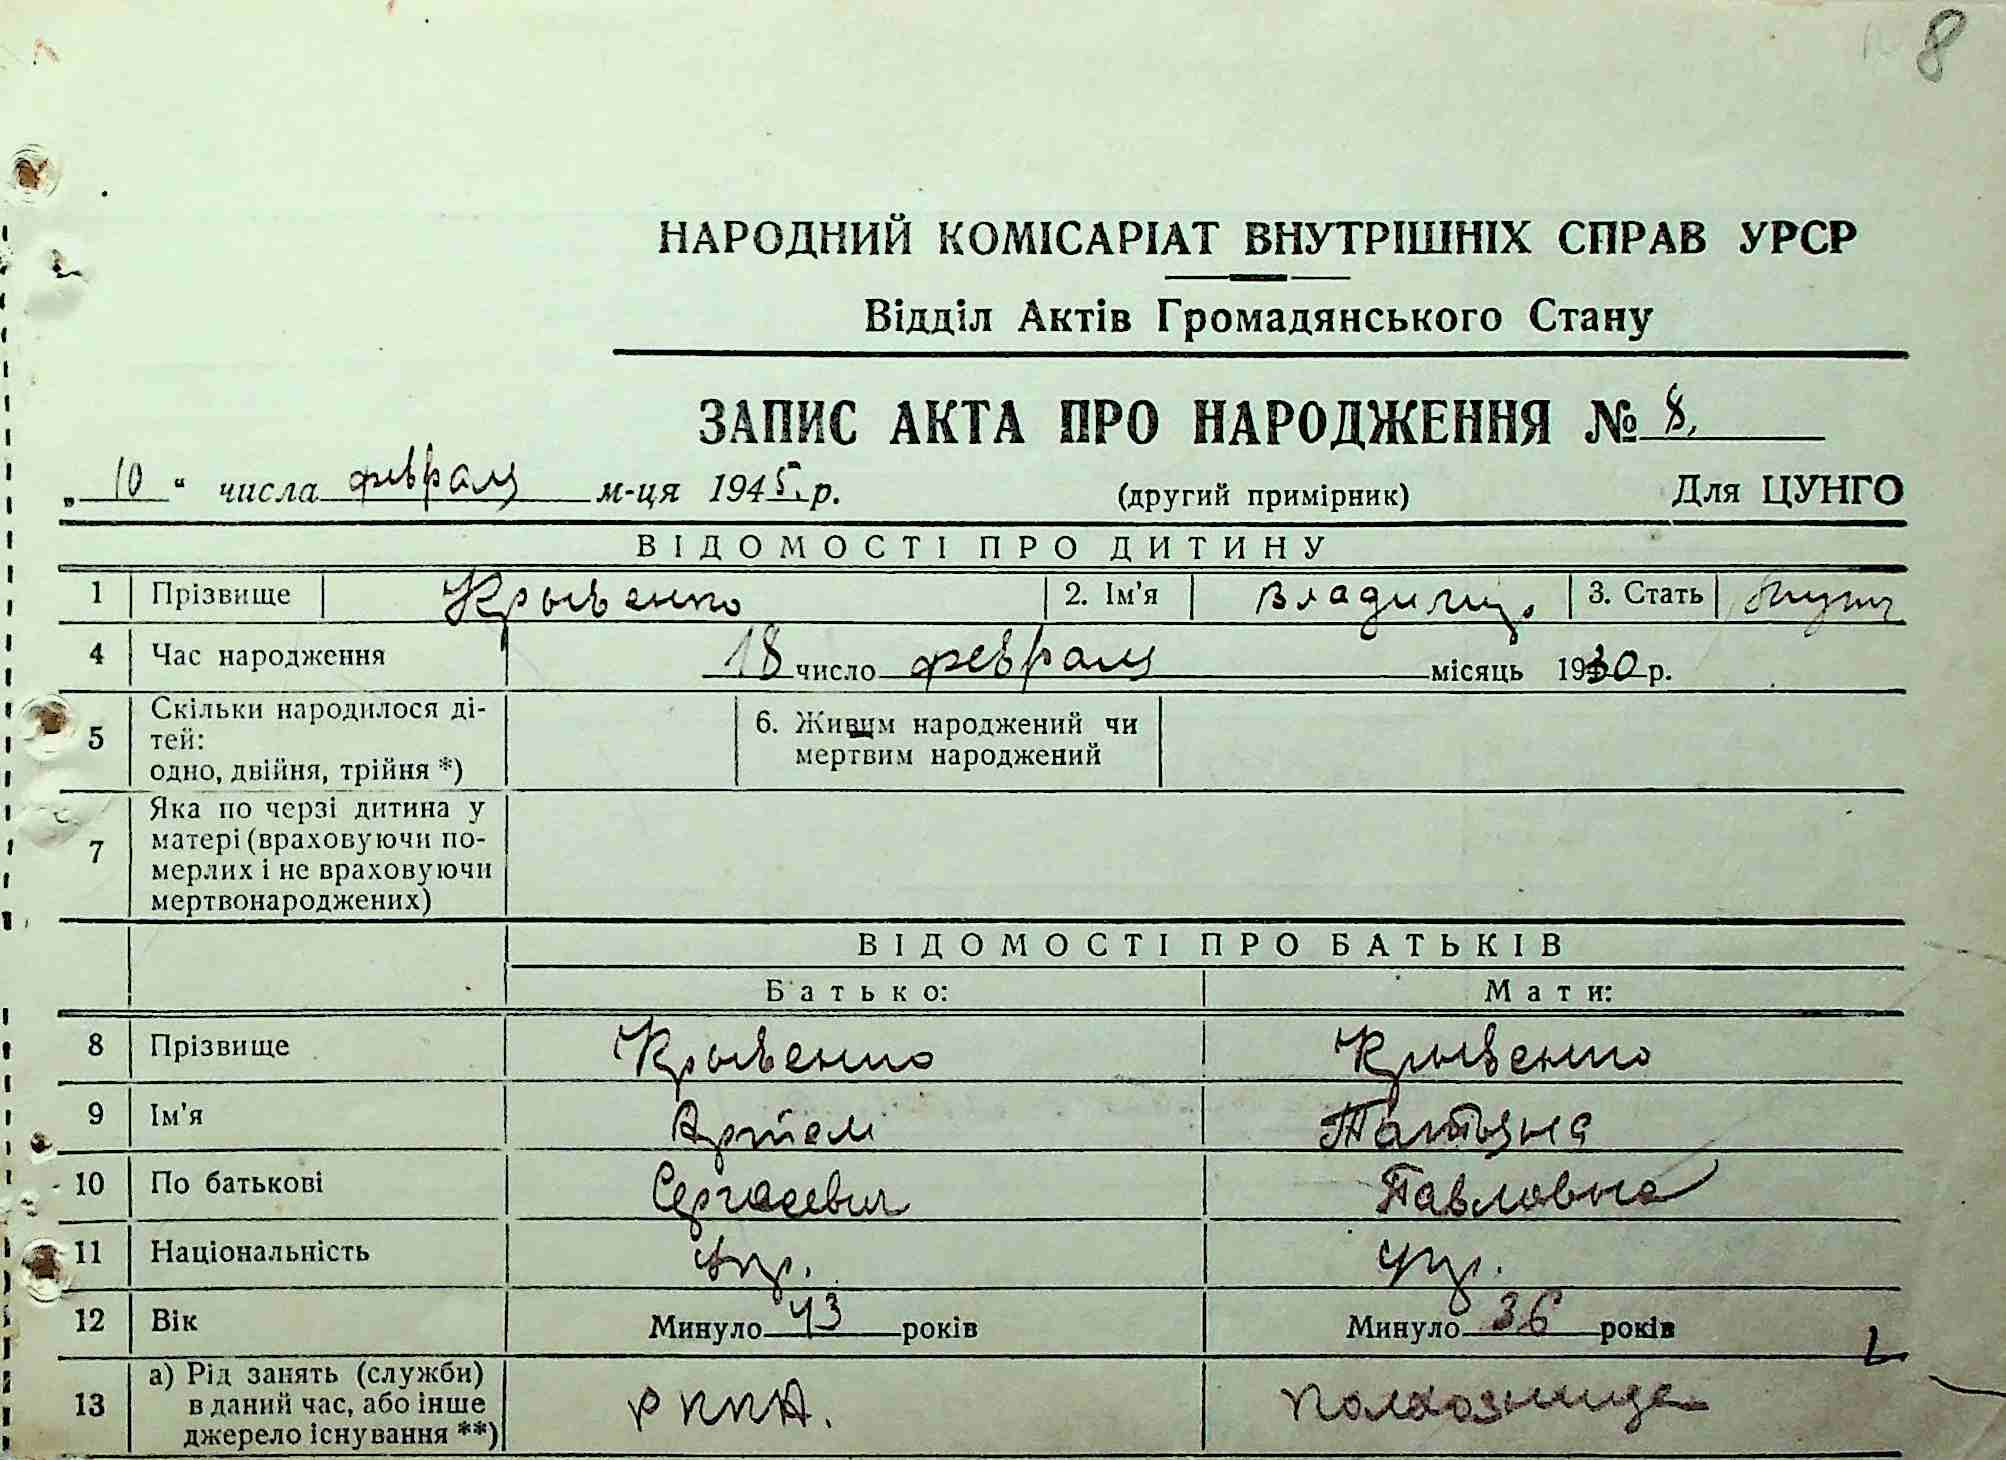 8
НАРОДНИЙ КОМІСАРІАТ ВНУТРІШНІХ СПРАВ УРСР
Відділ Актів Громадянського Стану
ЗАПИС АКТА ПРО НАРОДЖЕННЯ № 8.
„ 10 “ числа февраля м-ця 1945. р. (другий примірник) Для ЦУНГО
ВІДОМОСТІ ПРО ДИТИНУ
1 Прізвище Крывенко 2. Ім'я Владимир. 3. Стать муж
4 Час народження 18 число февраля місяць 1930 р.
5 Скільки народилося ді-
тей:
одно, двійня, трійня *)
6. Живим народжений чи
мертвим народжений
7 Яка по черзі дитина у
матері (враховуючи по-
мерлих і не враховуючи
мертвонароджених)
ВІДОМОСТІ ПРО БАТЬКІВ
Батько: Мати:
8 Прізвище Крывенко Крывенко
9 Ім'я Артем Татьяна
10 По батькові Сергеевич Павловна
11 Національність укр. укр.
12 Вік Минуло 43 років Минуло 36 років
13 а) Рід занять (служби)
в даний час, або інше
джерело існування **)
РККА. Колхозница